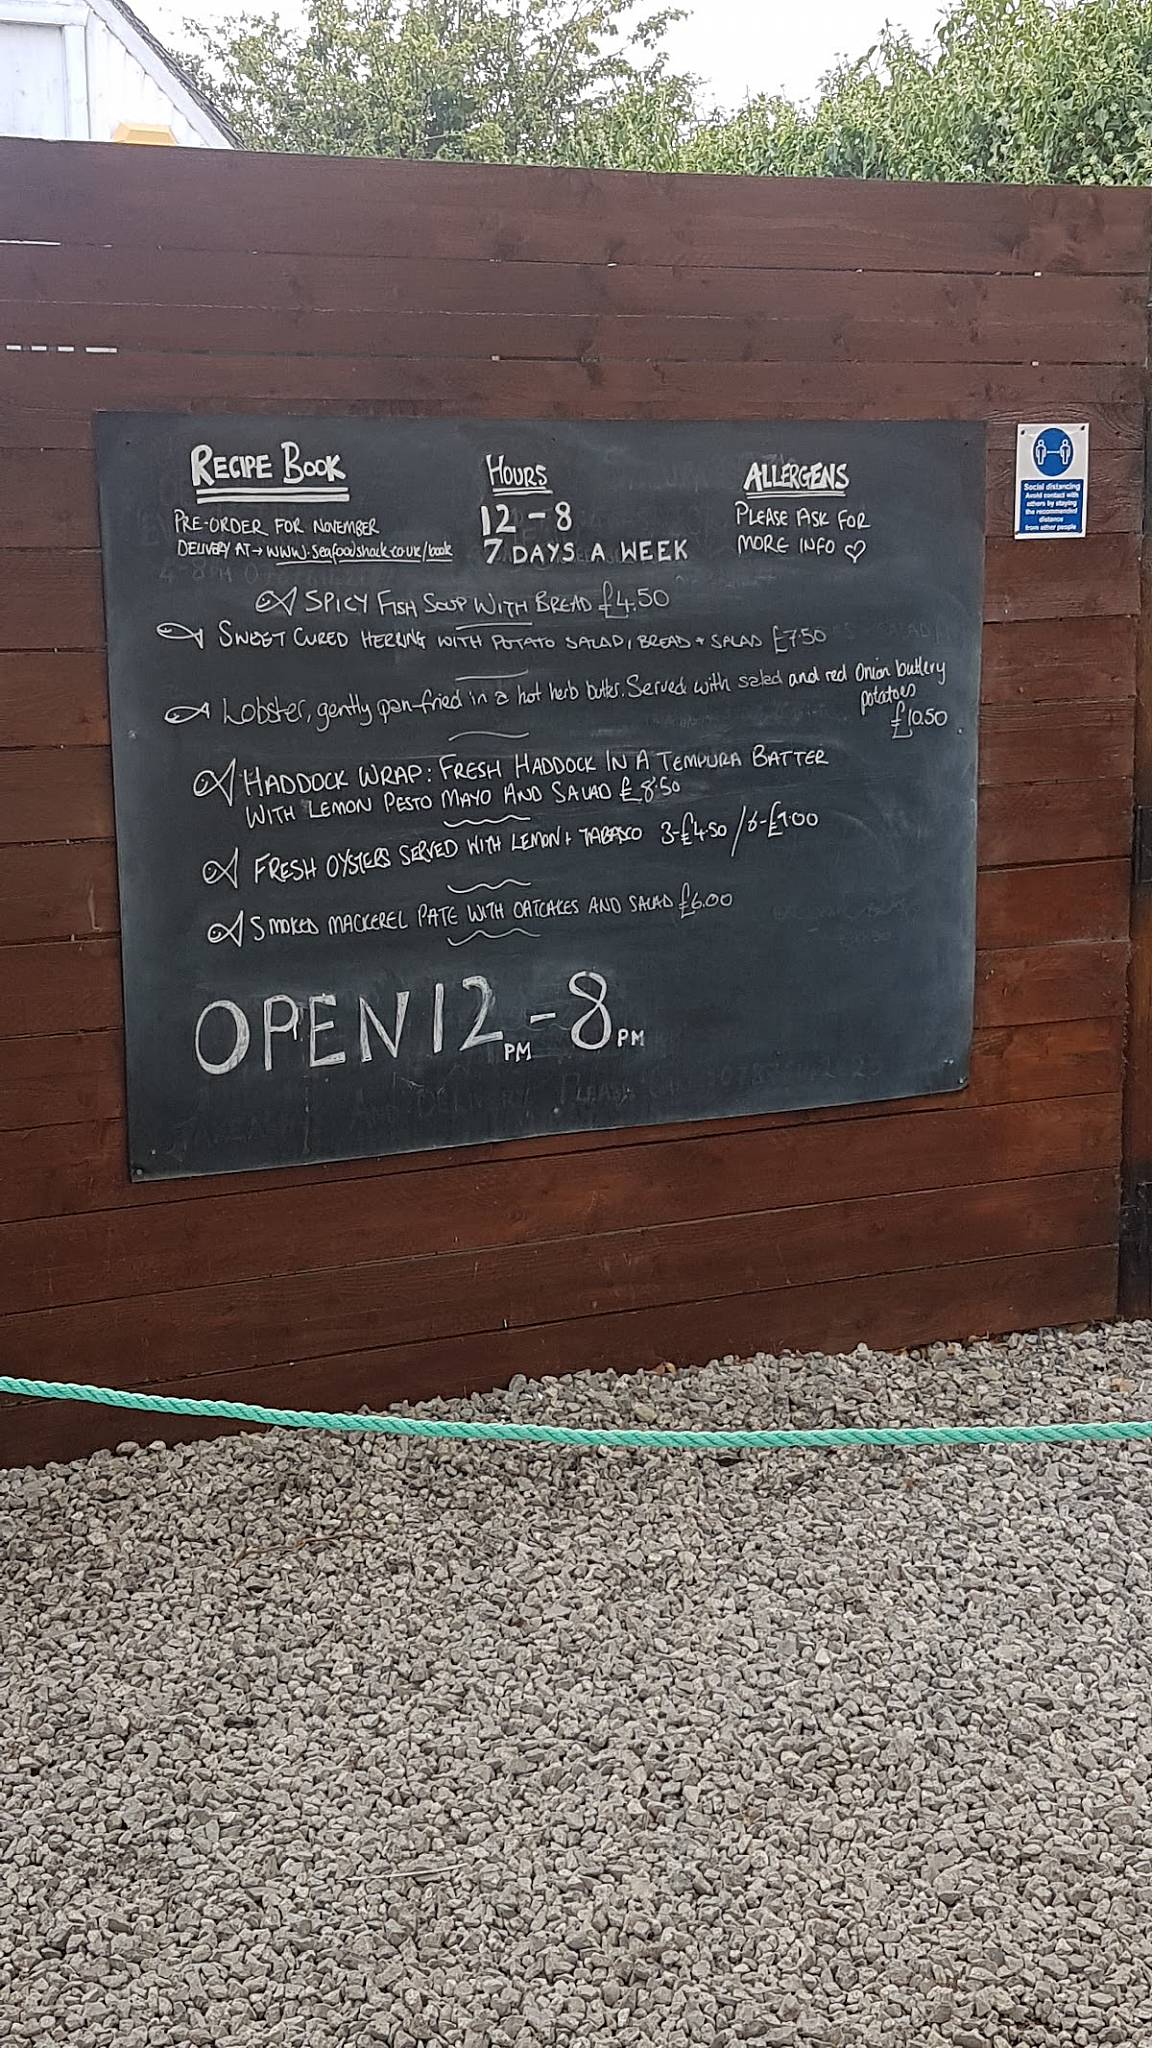 RECIPE BOOK
PRE-ORDER FOR NOVEMBER
DELIVERY AT → www.seafoodshack.co.uk/book
HOURS
12 - 8
7 DAYS A WEEK
ALLERGENS
PLEASE ASK FOR
MORE INFO ♡
SPICY FISH SOUP WITH BREAD £4.50
SWEET CURED HERRING WITH POTATO SALAD, BREAD + SALAD £7.50
Lobster, gently pan-fried in a hot herb butter. Served with salad and red onion buttery
potatoes
£10.50
HADDOCK WRAP: FRESH HADDOCK IN A TEMPURA BATTER
WITH LEMON PESTO MAYO AND SALAD £8.50
FRESH OYSTERS SERVED WITH LEMON + TABASCO 3-£4.50 / 6-£9.00
SMOKED MACKEREL PATE WITH OATCAKES AND SALAD £6.00
OPEN 12PM - 8PM
Social distancing
Avoid contact with
others by staying
the recommended
distance
from other people